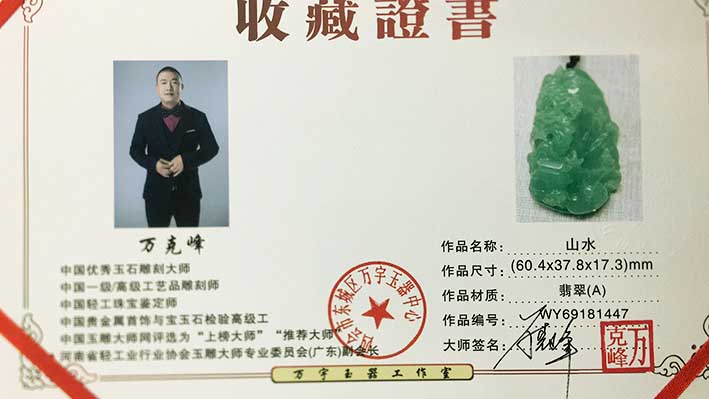 收藏證書
万克峰
中国优秀玉石雕刻大师
中国一级/高级工艺品雕刻师
中国轻工珠宝鉴定师
中国贵金属首饰与宝玉石检验高级工
中国玉雕大师网评选为“上榜大师”“推荐大师”
河南省轻工业行业协会玉雕大师专业委员会(广东)副会长
四会市东城区万字玉器中心
作品名称: 山水
作品尺寸: (60.4x37.8x17.3)mm
作品材质: 翡翠(A)
作品编号: WY69181447
大师签名: 万克峰
万克峰
万字玉器工作室